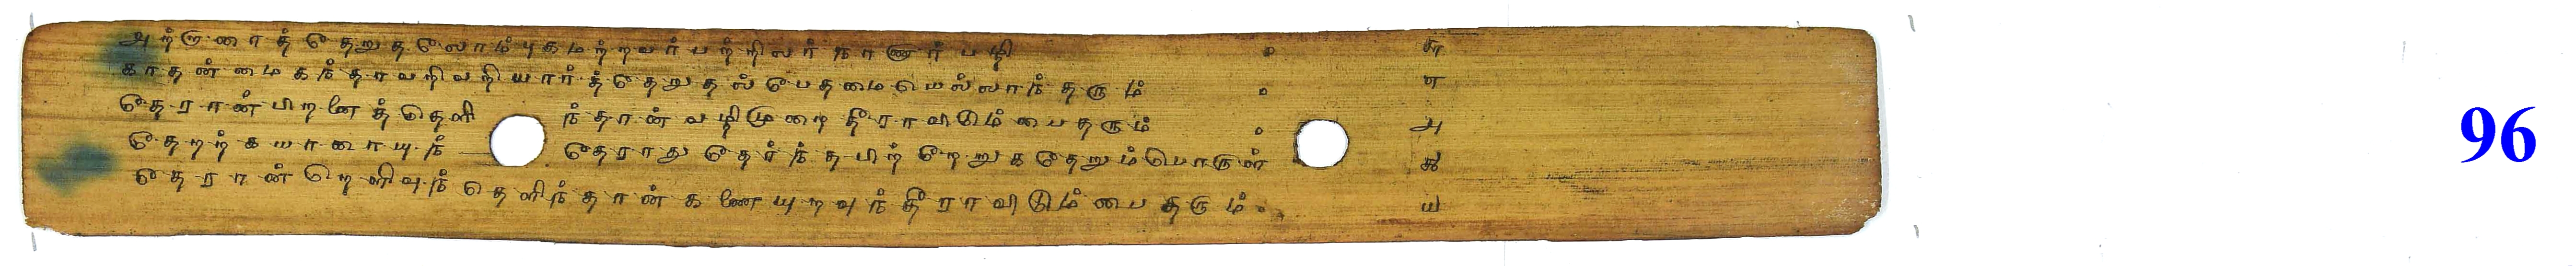 அற்றாரைத் தேறுதலோம்புகமற்றவர் பற்றிலர் நாணார் பழி ௬
காதன்மைகந்தாவறிவறியார்த்தேறுதல் பேதமையெல்லாந்தரும் ௭
தேரான்பிறனைத்தெளிந்தான் வழிமுறை தீராவிடும்பைதரும் ௮
தேறற்கயாரையுந்தேராது தேர்ந்தபிற் றேறுகதேறும்பொருள் ௯
தேரான்றெளிவுந்தெளிந்தான்கணையுறவுந்தீராவிடும்பைதரும் ௰
96